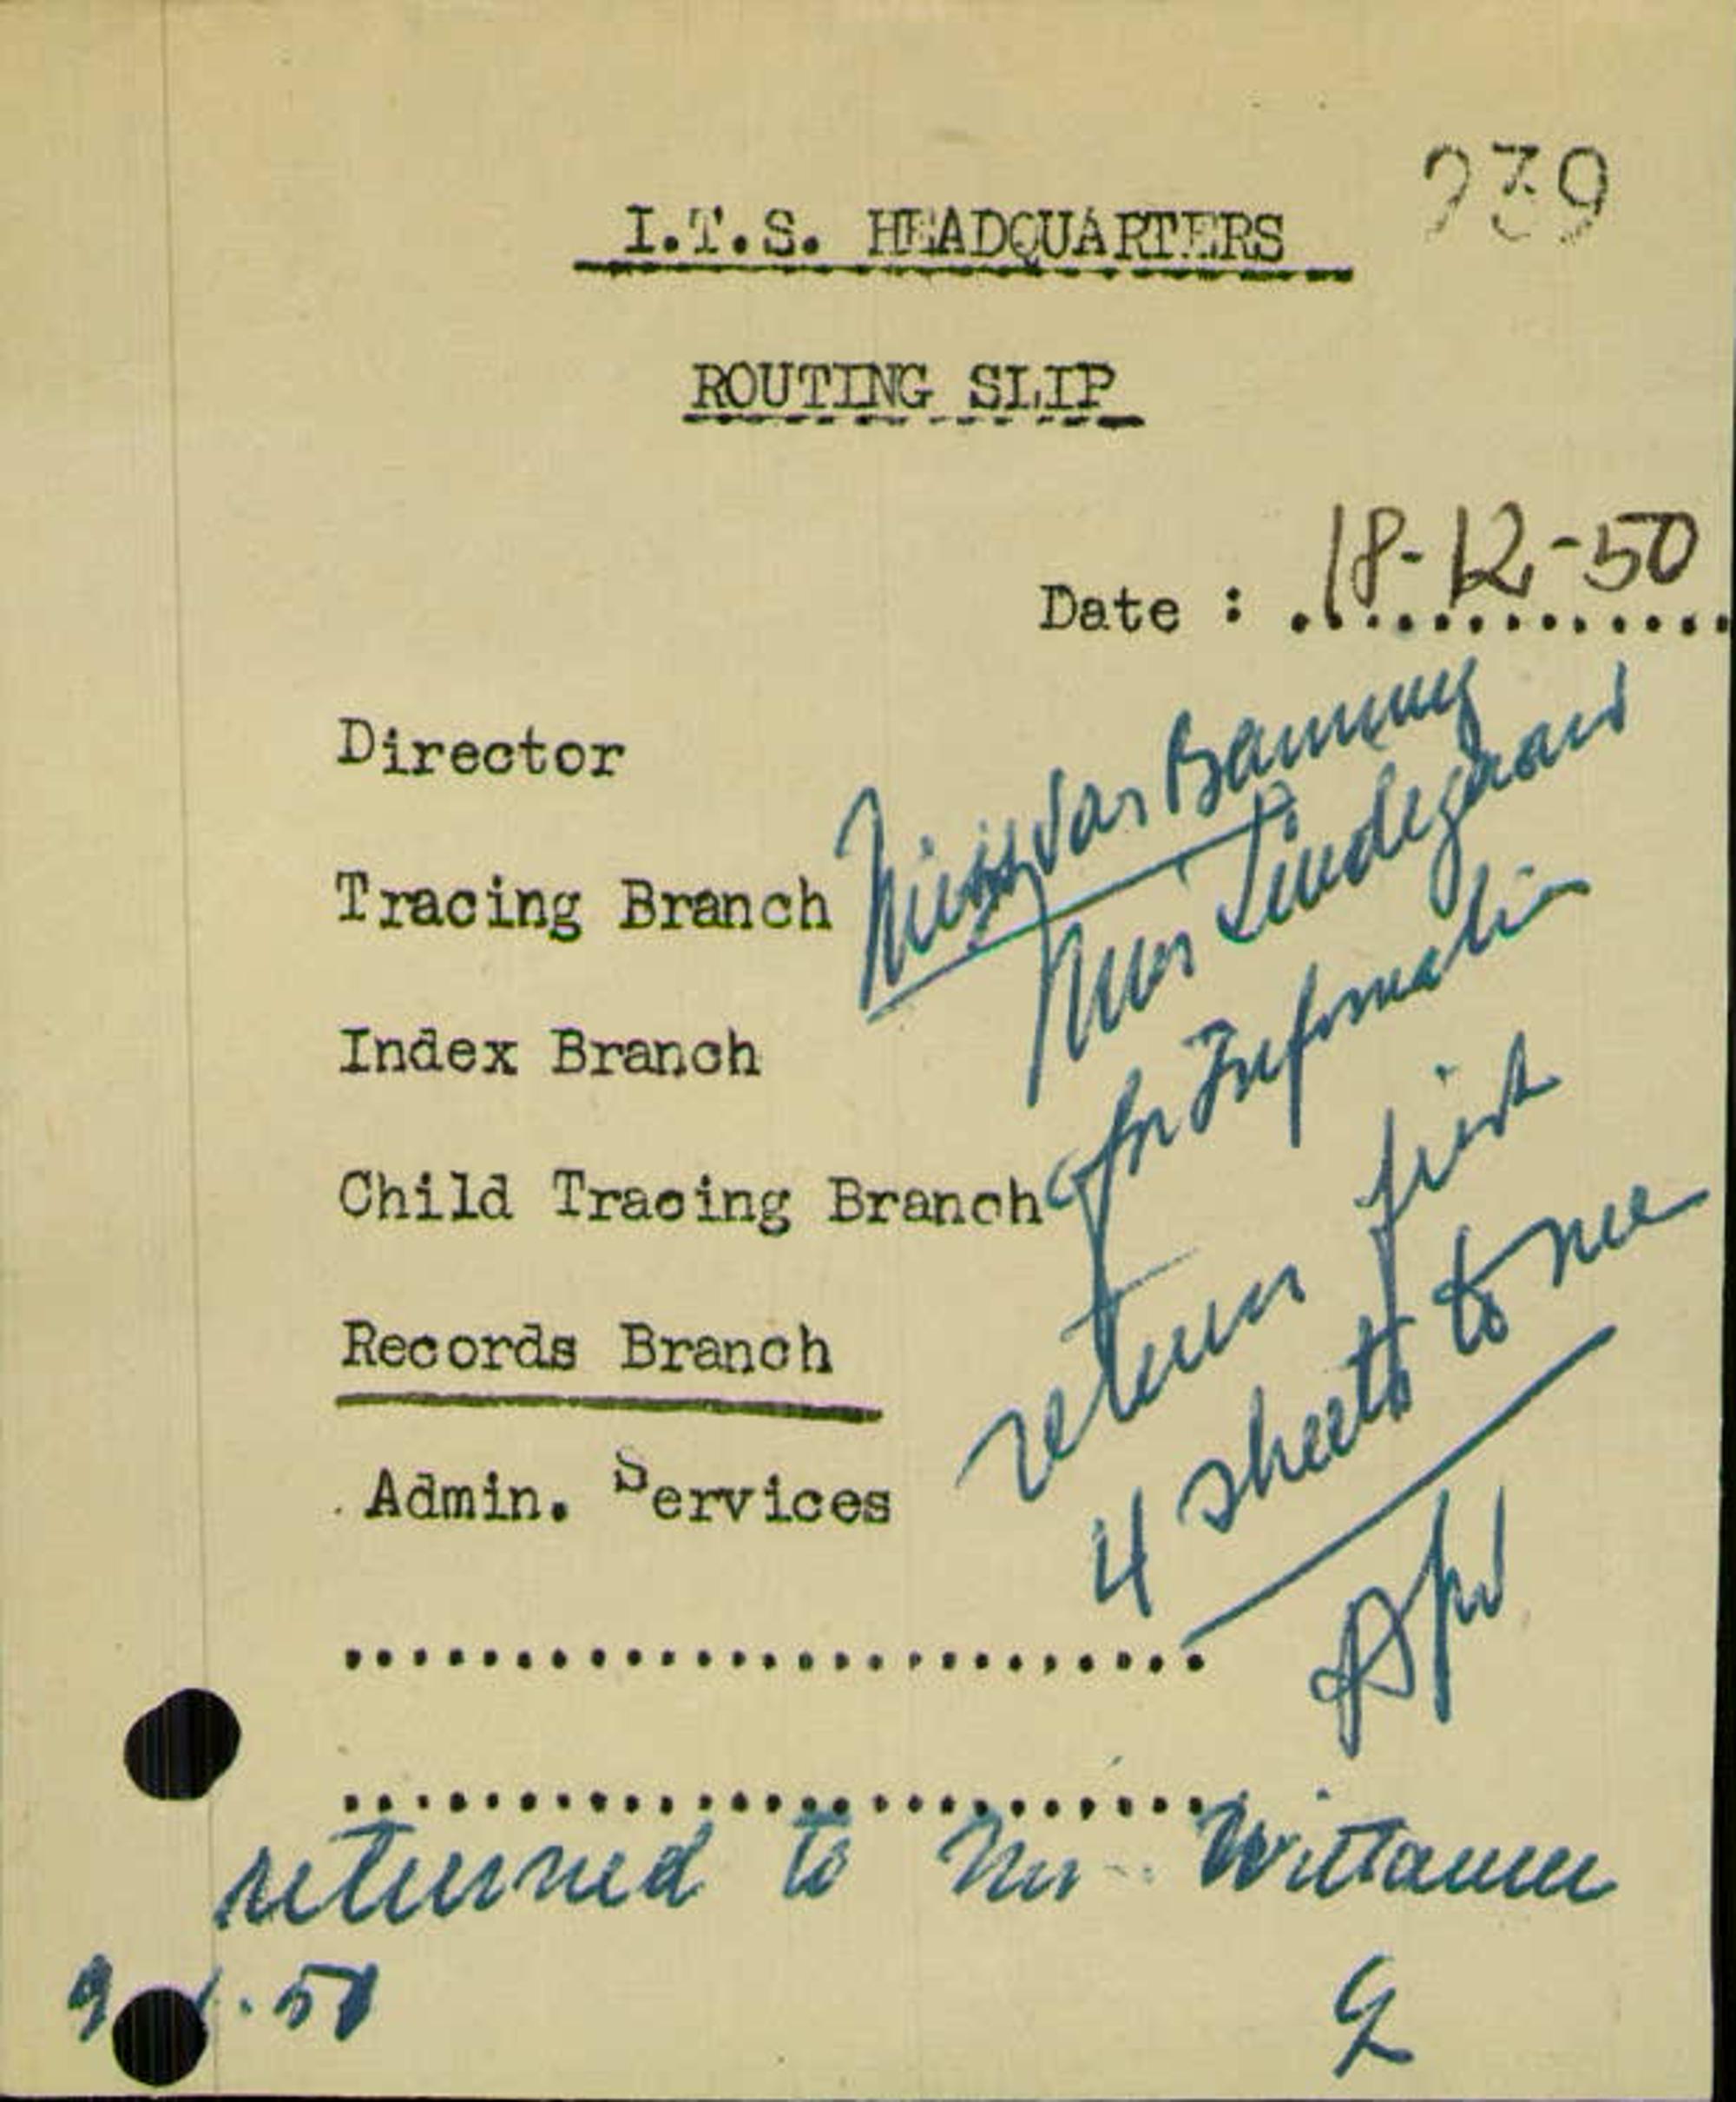 239
I.T.S. HEADQUARTERS
ROUTING SLIP
Date : 18-12-50
Director
Miss van Banning
Tracing Branch
Miss Lindegaard
Index Branch
for Information
Child Tracing Branch
return first
4 sheets to me
Records Branch
Admin. Services
returned to Mr. Wittamer